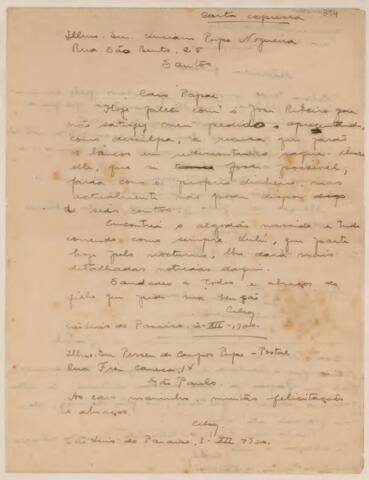 Carta expressa
Illmo. Snr. Luciano Pupo Nogueira
Rua São Bento, 25
Santos
Caro Papae
Hoje fallei com o José Ribeiro que
não satisfiz meu pedido, apresentando,
como desculpa, a
os bancos em
elle, que si fosse possivel,
com o proprio dinheiro, mas
actualmente não podia dispor
de seis contos.
Encontrei o algodão nascido e tudo
correndo como sempre. Lulú, que parte
hoje pelo nocturno, lhe dará mais
detalhadas noticias daqui.
Saudades a todos e abraços do
filho que pede sua benção
Celso
São Luis do Paraiso, 2-XII-1920.
Illmo. Snr. Perseu de Campos Pupo - Postal
Rua Frei Caneca, 14
São Paulo.
Ao caro maninho, muitas felicitações
e abraços
Celso
São Luis do Paraiso, 2-XII-1920.